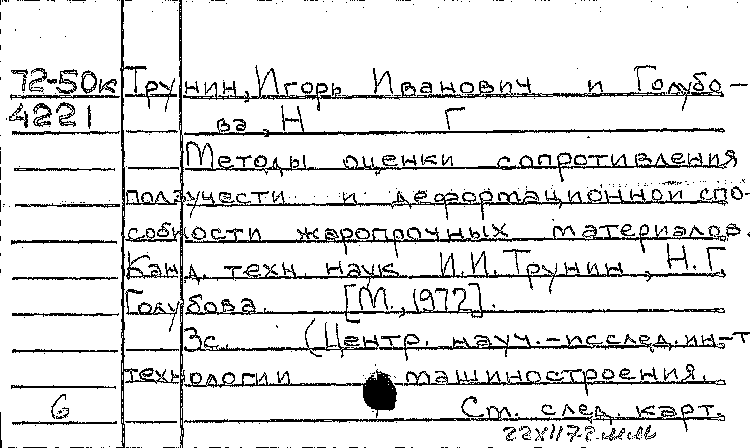 72-50к Трунин, Игорь Иванович и Голубо-
4221 ва, Н Г
Методы оценки сопротивления
ползучести и деформационной спо-
собности жаропрочных материалов.
Канд. техн. наук И.И. Трунин, Н.Г.
Голубова. [М., 1972].
3с. (Центр. науч.-исслед. ин-т
технологии машиностроения.
6 Ст. след. карт.